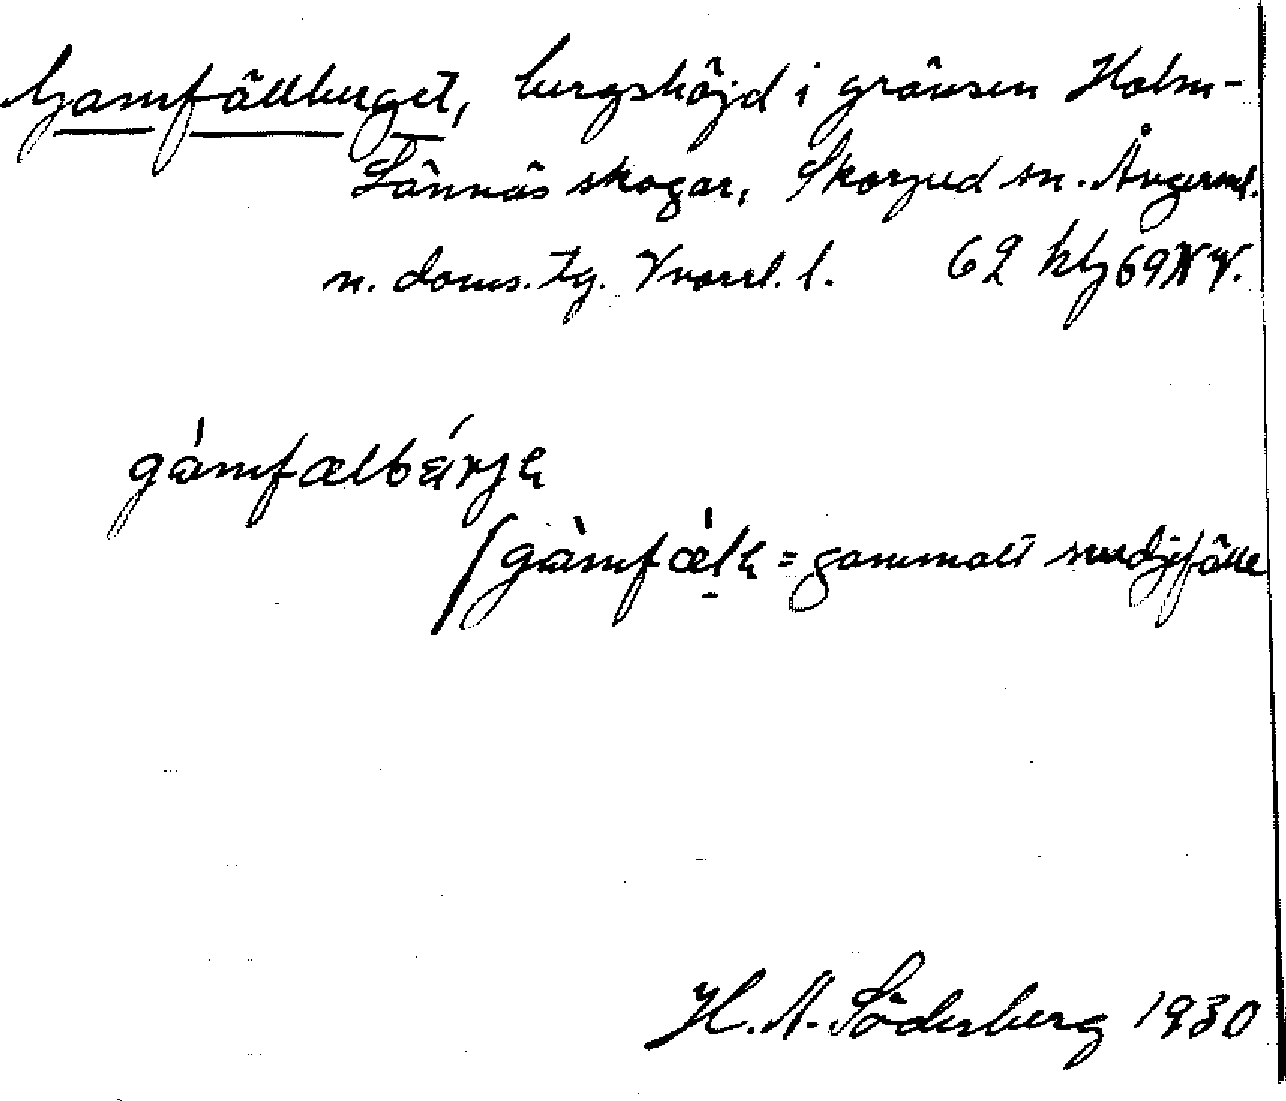 Gamfällberget, bergshöjd i gränsen Holm-
Lännäs skogar, Skorped sn. Ångerml.
n. doms. tg. Västernl. l. 62 hlz 69 NV.
gàmfælbǽrjə
/gàmfælə = gammalt svedjefälle
H. A. Söderberg 1930